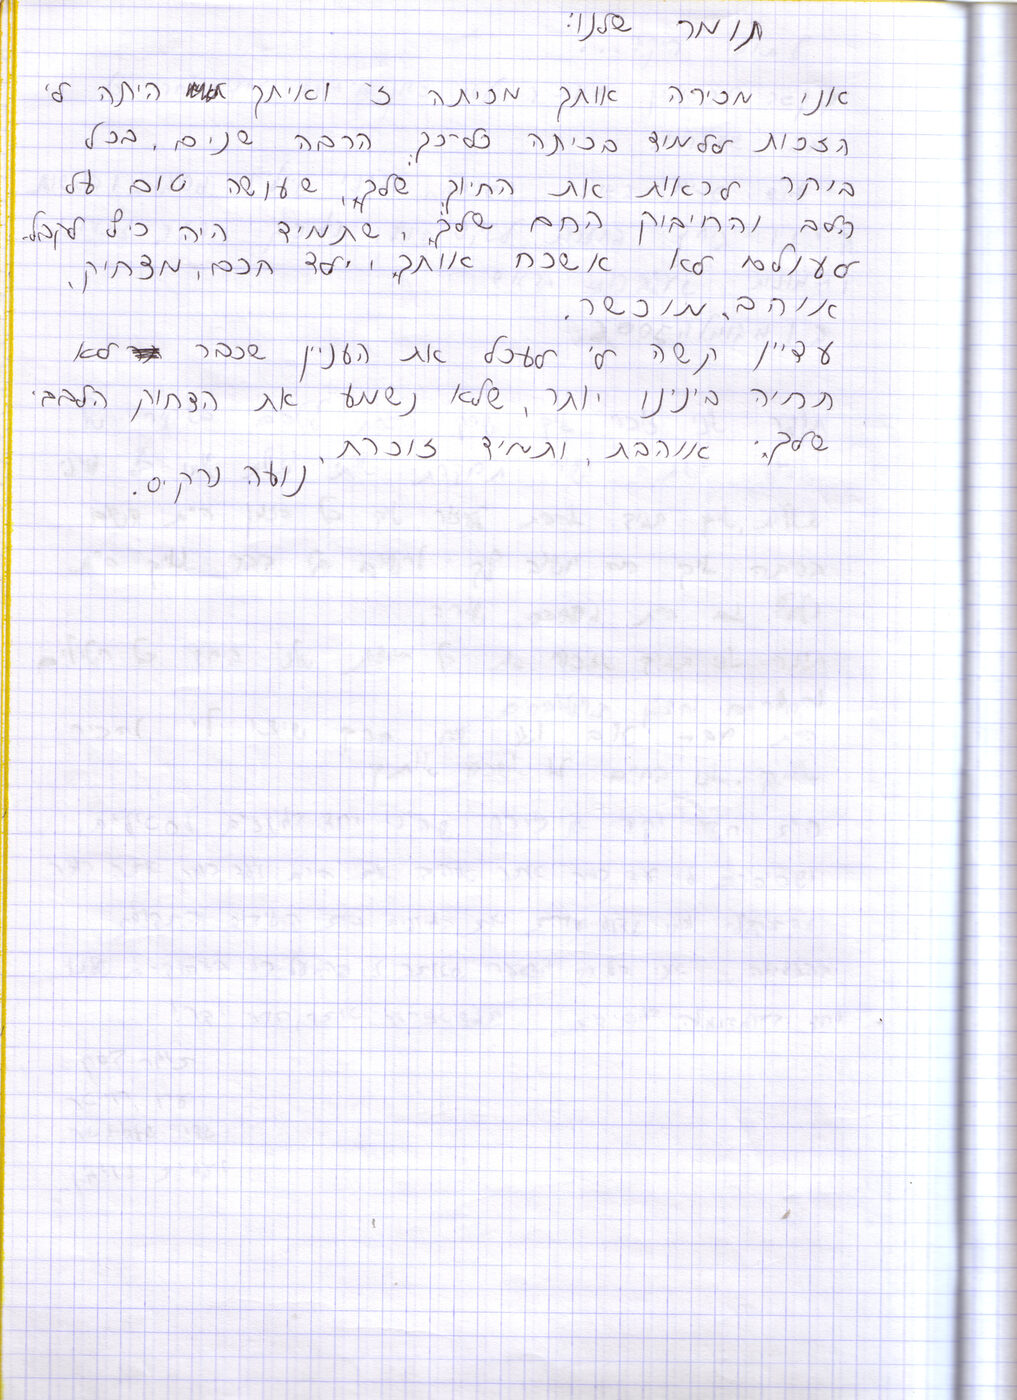 תומר שלנו:
אני מכירה אותך מכיתה ז' ואיתך היתה לי
הזכות ללמוד בכיתה כל-כך הרבה שנים, בכל
ביקר לראות את החיוך שלך, שעושה טוב על
הלב והחיבוק החם שלך, שתמיד היה כיף לקבל.
לעולם לא אשכח אותך, ילד חכם, מצחיק,
אוהב, מוכשר.
עדיין קשה לי לעכל את העניין שכבר לא
תהיה בינינו יותר, שלא נשמע את הצחוק הלבבי
שלך: אוהבת, ותמיד זוכרת,
נועה